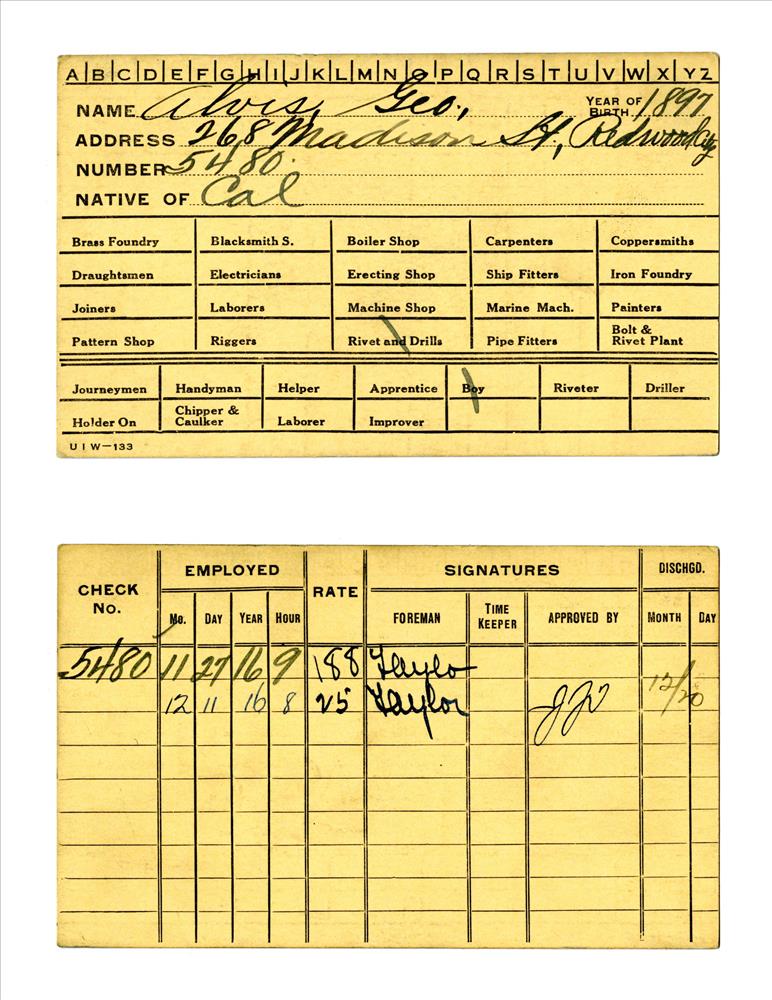 A B C D E F G H I J K L M N O P Q R S T U V W X Y Z
NAME Alvis, Geo., YEAR OF BIRTH 1897
ADDRESS 268 Madison St, Redwood City
NUMBER 5480.
NATIVE OF Cal
Brass Foundry Blacksmith S. Boiler Shop Carpenters Coppersmiths
Draughtsmen Electricians Erecting Shop Ship Fitters Iron Foundry
Joiners Laborers Machine Shop Marine Mach. Painters
Pattern Shop Riggers Rivet and Drills Pipe Fitters Bolt & Rivet Plant
Journeymen Handyman Helper Apprentice Boy Riveter Driller
Holder On Chipper & Caulker Laborer Improver
U I W—133
CHECK No. EMPLOYED RATE SIGNATURES DISCHGD.
Mo. DAY YEAR HOUR FOREMAN TIME KEEPER APPROVED BY MONTH DAY
5480 11 27 16 9 188 Taylo
12 11 16 8 25 Taylor 12/20